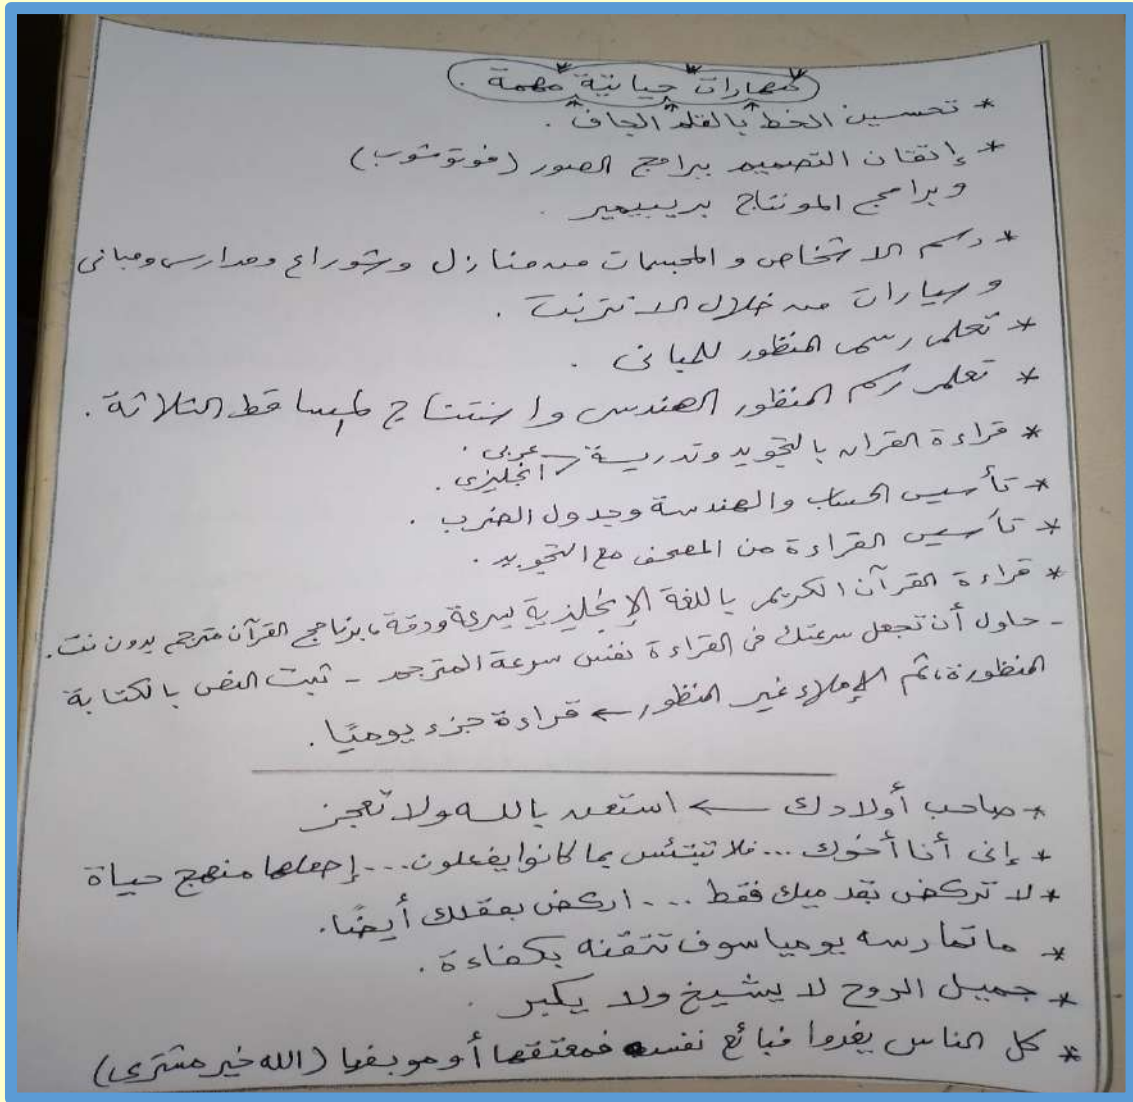 مهارات حياتية مهمة .
* تحسين الخط بالقلم الجاف .
* إتقان التصميم ببرامج الصور (فوتوشوب)
وبرامج المونتاج بريبيمير .
* رسم الاشخاص و المجسمات من منازل وشوراع ومدارس ومبانى
وسيارات من خلال الانترنت .
* تعلم رسم المنظور للمبانى .
* تعلم رسم المنظور الهندسى واستنتاج المساقط الثلاثة .
* قراءة القران بالتجويد وتدريسة < عربى .
انجليزى .
* تأسيس الحساب والهندسة وجدول الضرب .
* تأسيس القراءة من المصحف مع التجويد .
* قراءة القرآن الكريم باللغة الإنجليزية بسرعة ودقة، برنامج القرآن مترجم بدون نت .
- حاول أن تجعل سرعتك فى القراءة نفس سرعة المترجم - ثبت النص بالكتابة
المنظورة، ثم الإملاء غير المنظور ← قراءة جزء يوميًا .
* صاحب أولادك ← استعن بالله ولا تعجز
* إنى أنا أخوك ... فلا تبتئس بما كانوا يفعلون ... إجعلها منهج حياة
* لا تركض بقدميك فقط ... اركض بعقلك أيضًا .
* ما تمارسه يوميا سوف تتقنه بكفاءة .
* جميل الروح لا يشيخ ولا يكبر .
* كل الناس يغدوا فبائع نفسه فمعتقها أو موبقها (الله خير مشترى)